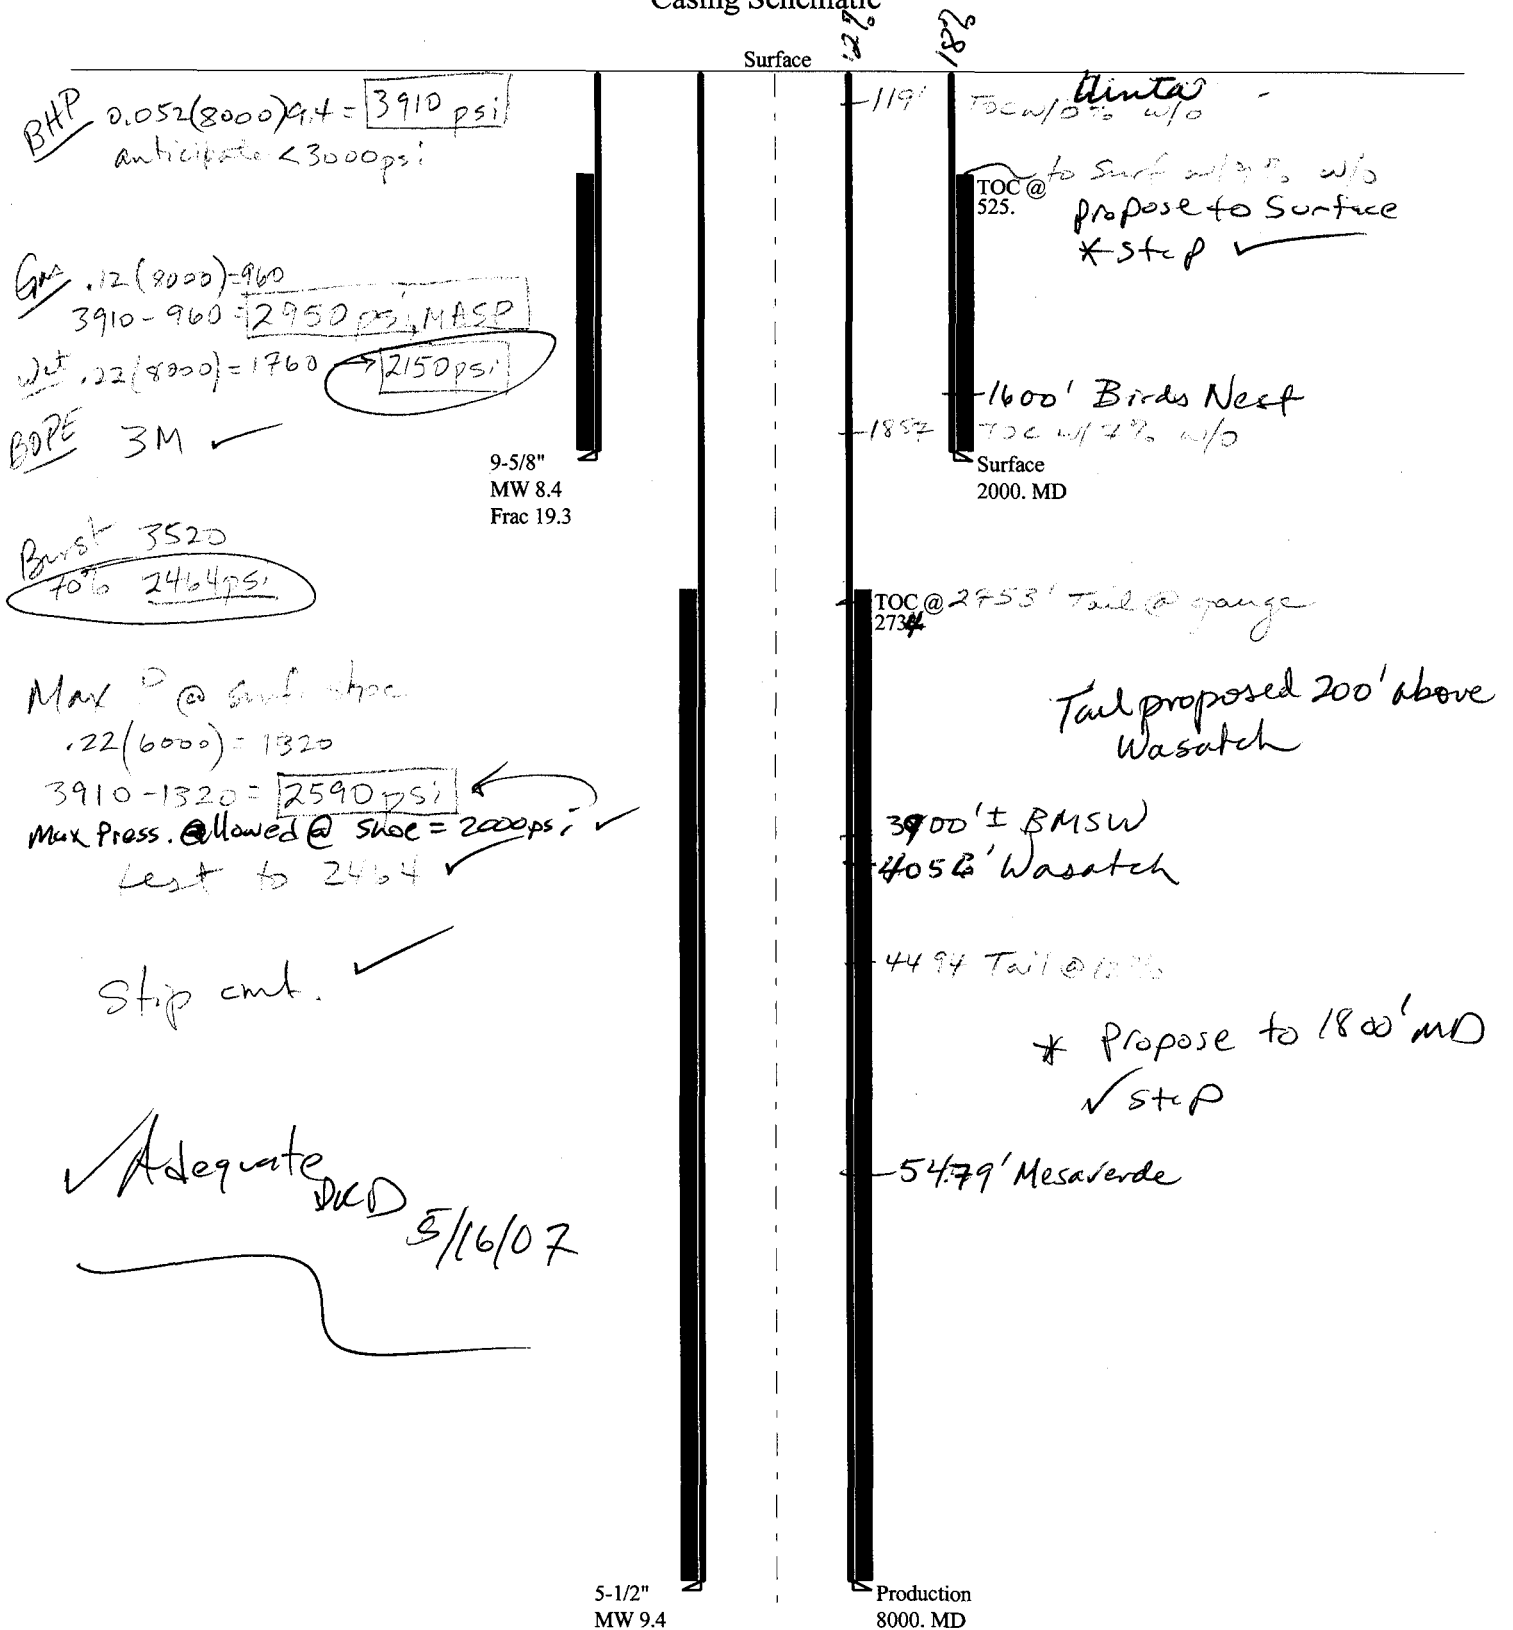 Casing Schematic
12%
18%
Surface
BHP 0.052(8000)9.4 = 3910 psi
anticipate <3000psi
Gas .12(8000)=960
3910-960 = 2950 psi, MASP
.22(8000)=1760 → 2150psi
BOPE 3M ✓
9-5/8"
MW 8.4
Frac 19.3
Burst 3520
70% 2464psi
Max P @ surf. shoe
.22(6000) = 1320
3910-1320 = 2590 psi
Max Press. @llowed @ shoe = 2000psi ✓
test to 2464 ✓
Stip cmt. ✓
✓ Adequate
DKD
5/16/07
5-1/2"
MW 9.4
Uinta
119' TOC w/0% w/o
to Surf w/ % w/o
TOC @
525.
propose to Surface
*stip ✓
1600' Birds Nest
1857 TOC w/7% w/o
Surface
2000. MD
TOC @ 2753' Tail @ gauge
2734
Tail proposed 200' above
Wasatch
3900'± BMSW
Wasatch
4494 Tail @ 12%
* Propose to 1800' MD
✓ stip
5479' Mesaverde
Production
8000. MD